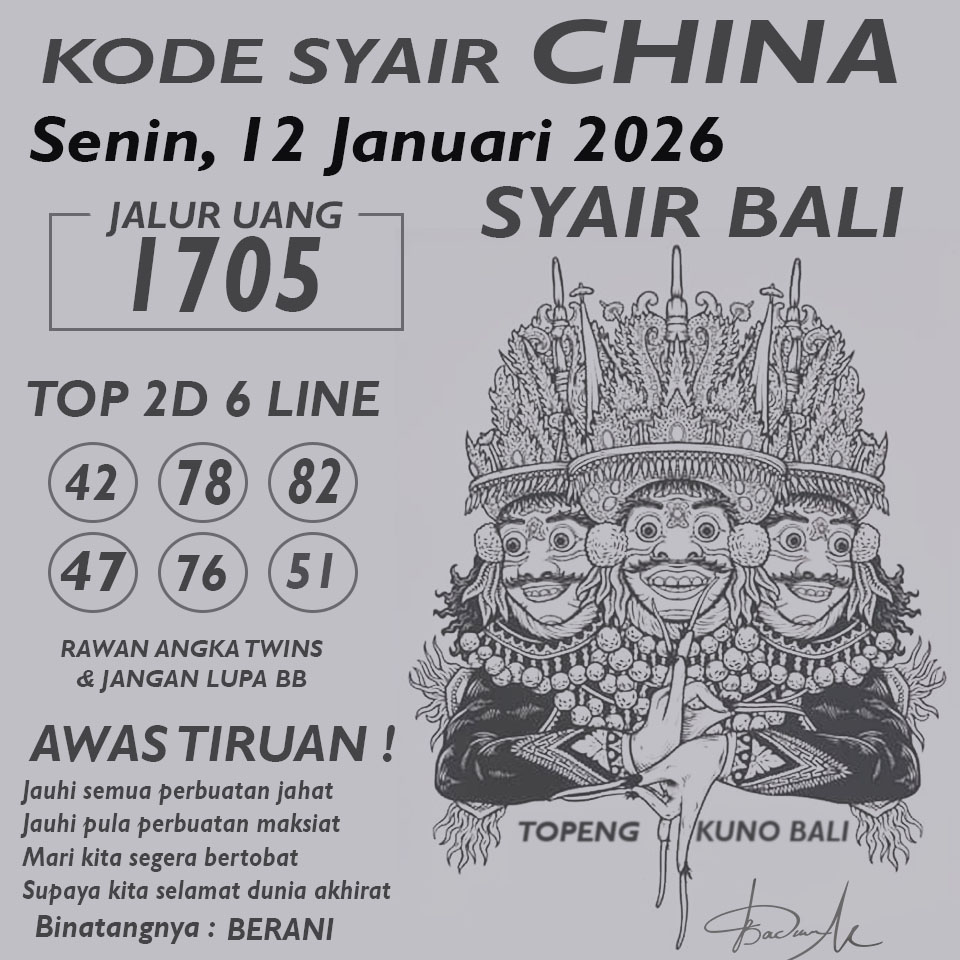 KODE SYAIR CHINA
Senin, 12 Januari 2026
SYAIR BALI
JALUR UANG
1705
TOP 2D 6 LINE
42 78 82
47 76 51
RAWAN ANGKA TWINS
& JANGAN LUPA BB
AWAS TIRUAN !
Jauhi semua perbuatan jahat
Jauhi pula perbuatan maksiat
Mari kita segera bertobat
Supaya kita selamat dunia akhirat
Binatangnya : BERANI
TOPENG KUNO BALI